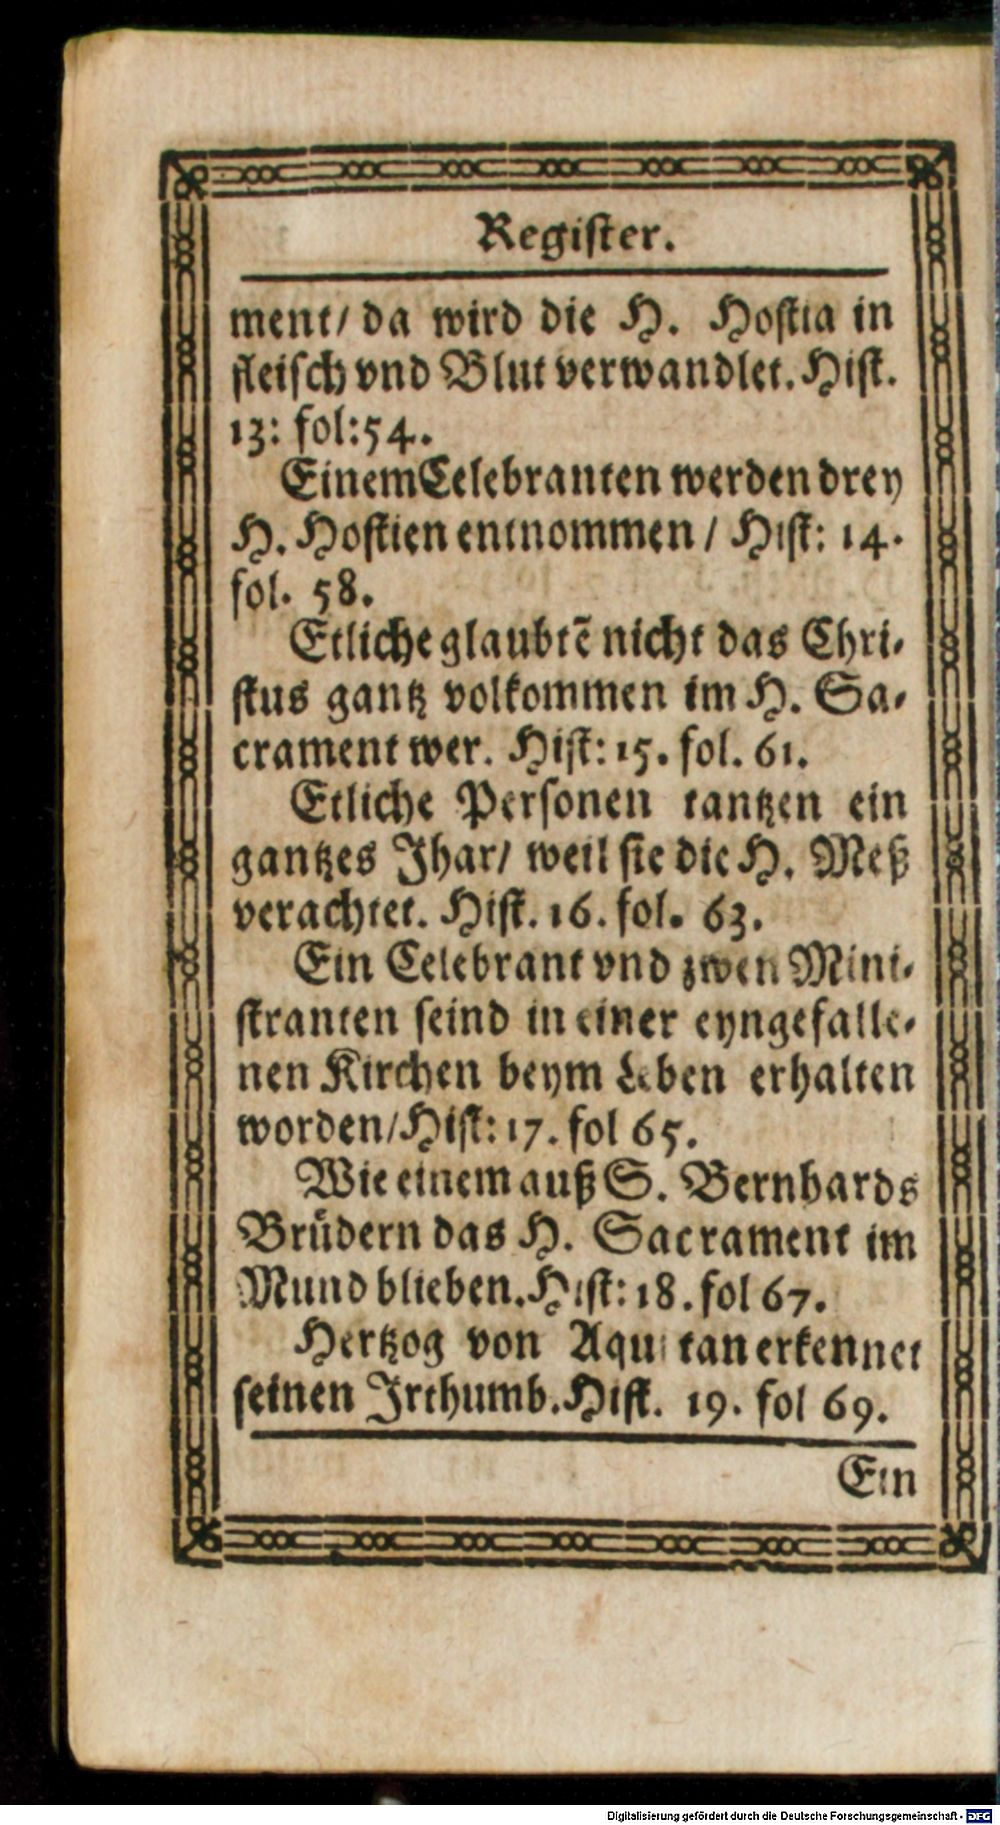 Register.
ment/ da wird die H. Hostia in
fleisch vnd Blut verwandlet. Hist.
13: fol:54.
Einem Celebranten werden drey
H. Hostien entnommen / Hist: 14.
fol. 58.
Etliche glaubtẽ nicht das Chri-
stus gantz volkommen im H. Sa-
crament wer. Hist: 15. fol. 61.
Etliche Personen tantzen ein
gantzes Jhar/ weil sie die H. Meß
verachtet. Hist. 16. fol. 63.
Ein Celebrant vnd zwen Mini-
stranten seind in einer eyngefalle-
nen Kirchen beym Leben erhalten
worden/Hist: 17. fol 65.
Wie einem auß S. Bernhards
Brüdern das H. Sacrament im
Mund blieben. Hist: 18. fol 67.
Hertzog von Aquitan erkennet
seinen Jrthumb. Hist. 19. fol 69.
Ein
Digitalisierung gefördert durch die Deutsche Forschungsgemeinschaft - DFG